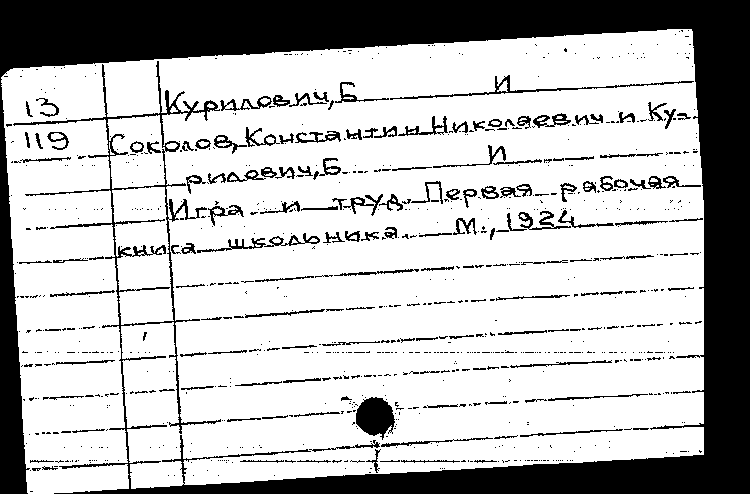 13 Курилович, Б И
119 Соколов, Константин Николаевич и Ку-
рилович, Б И
Игра и труд. Первая рабочая
книга школьника. М., 1924